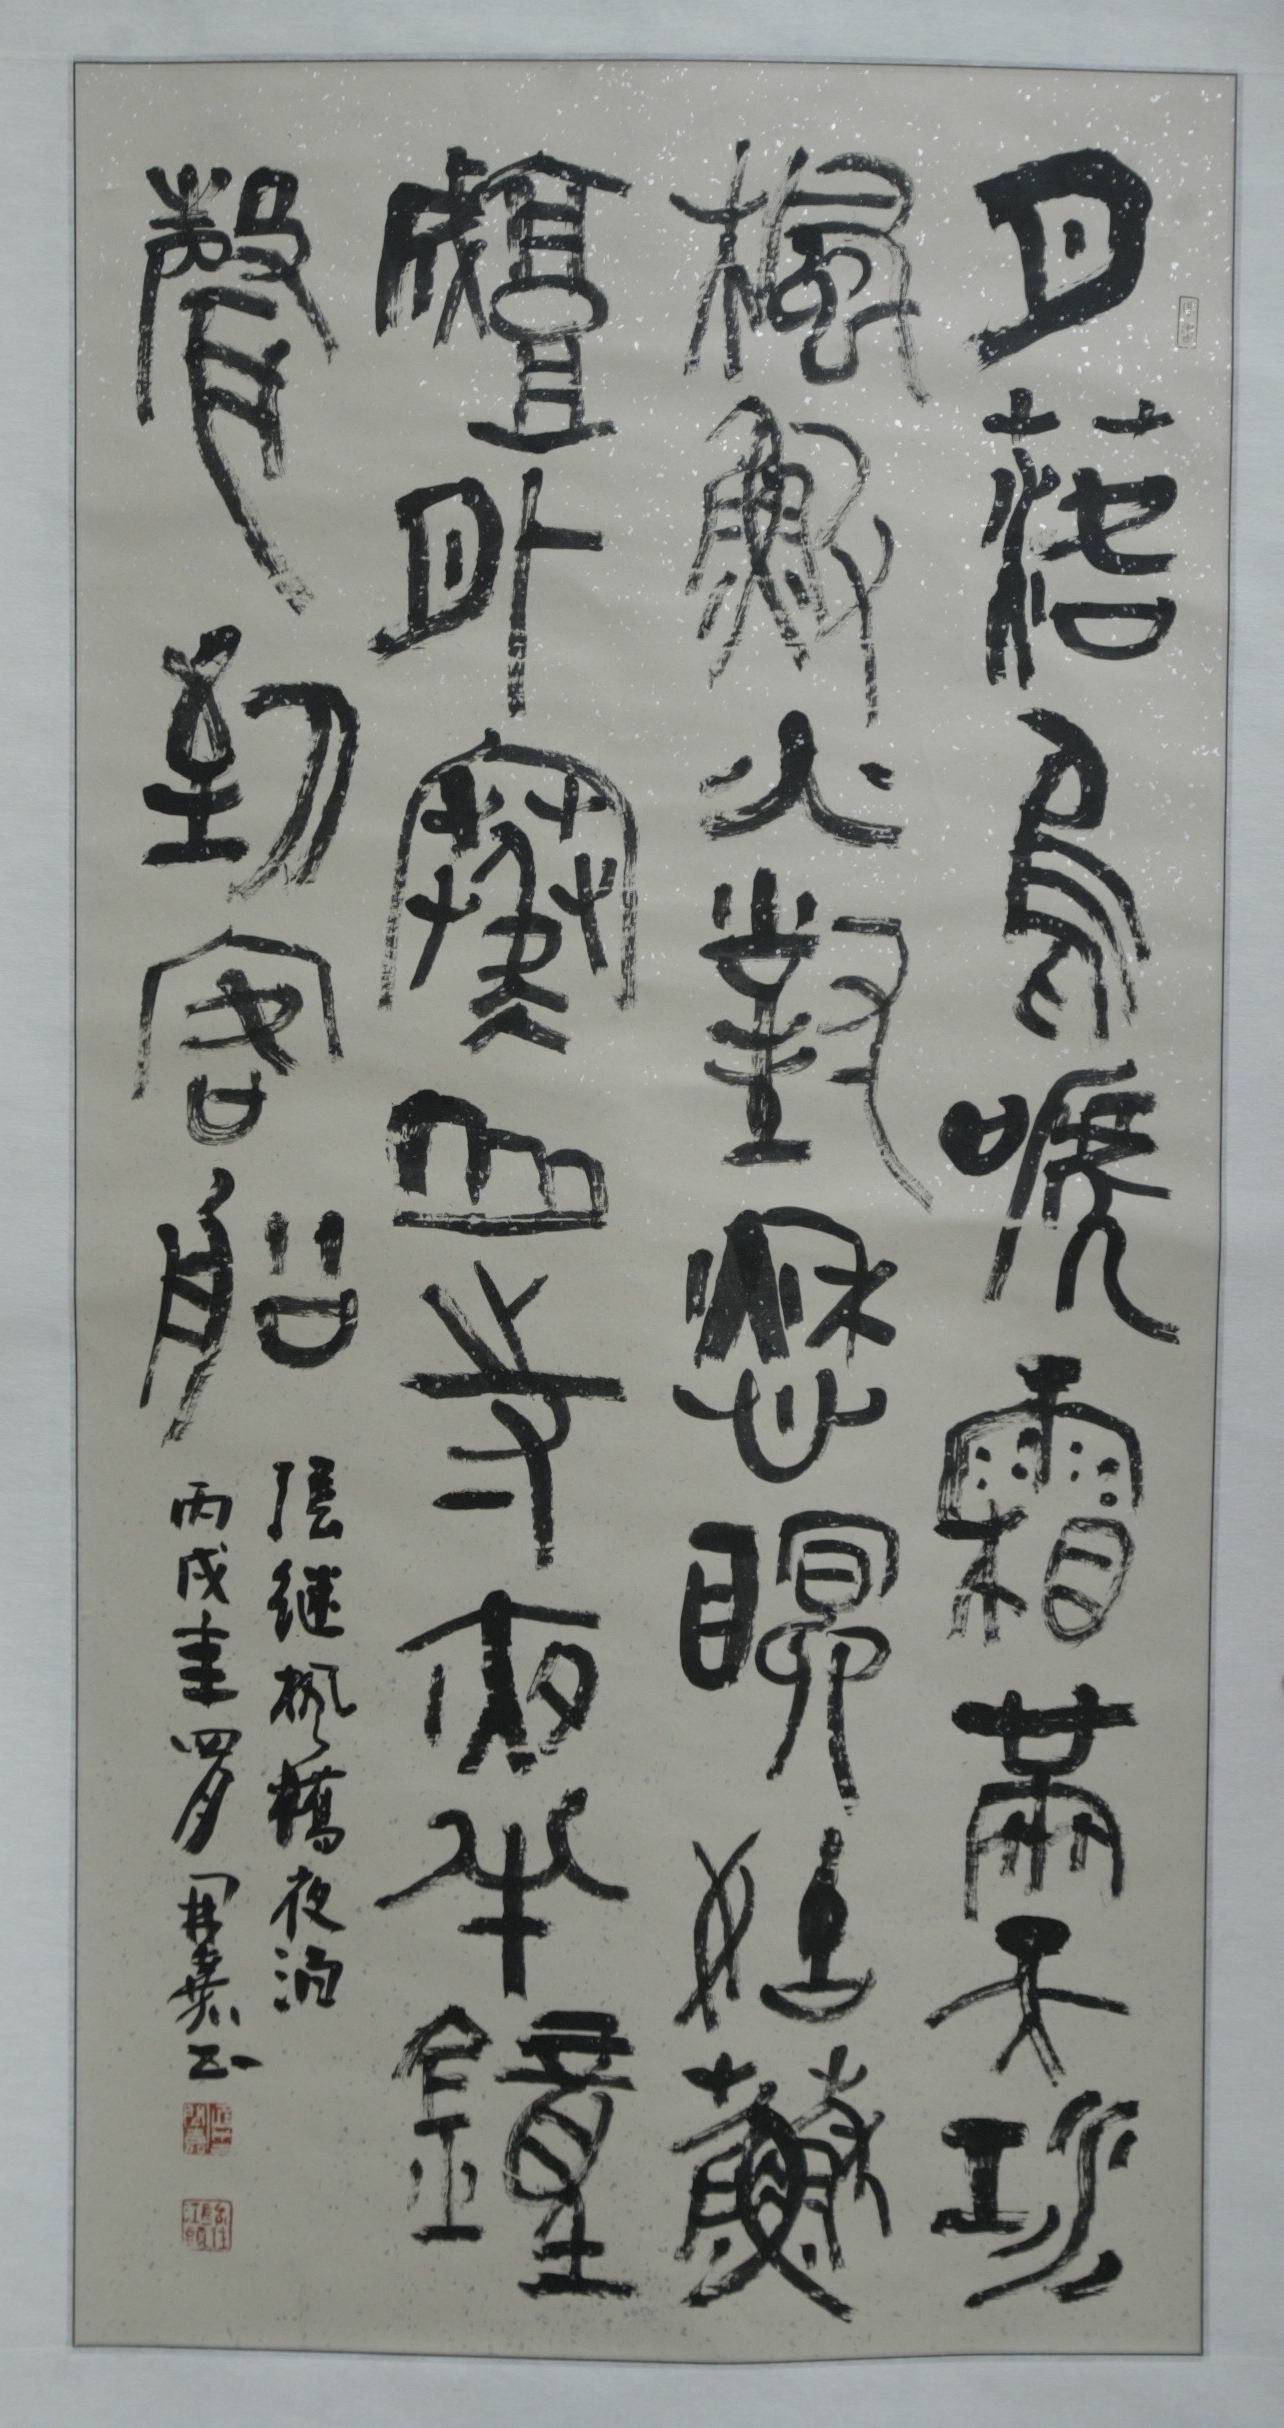 月落烏嗁霜滿天江
楓漁火對愁瞑姑蘇
城外寒山寺夜半鐘
聲到客船
張继楓橋夜泊
丙戌年四月